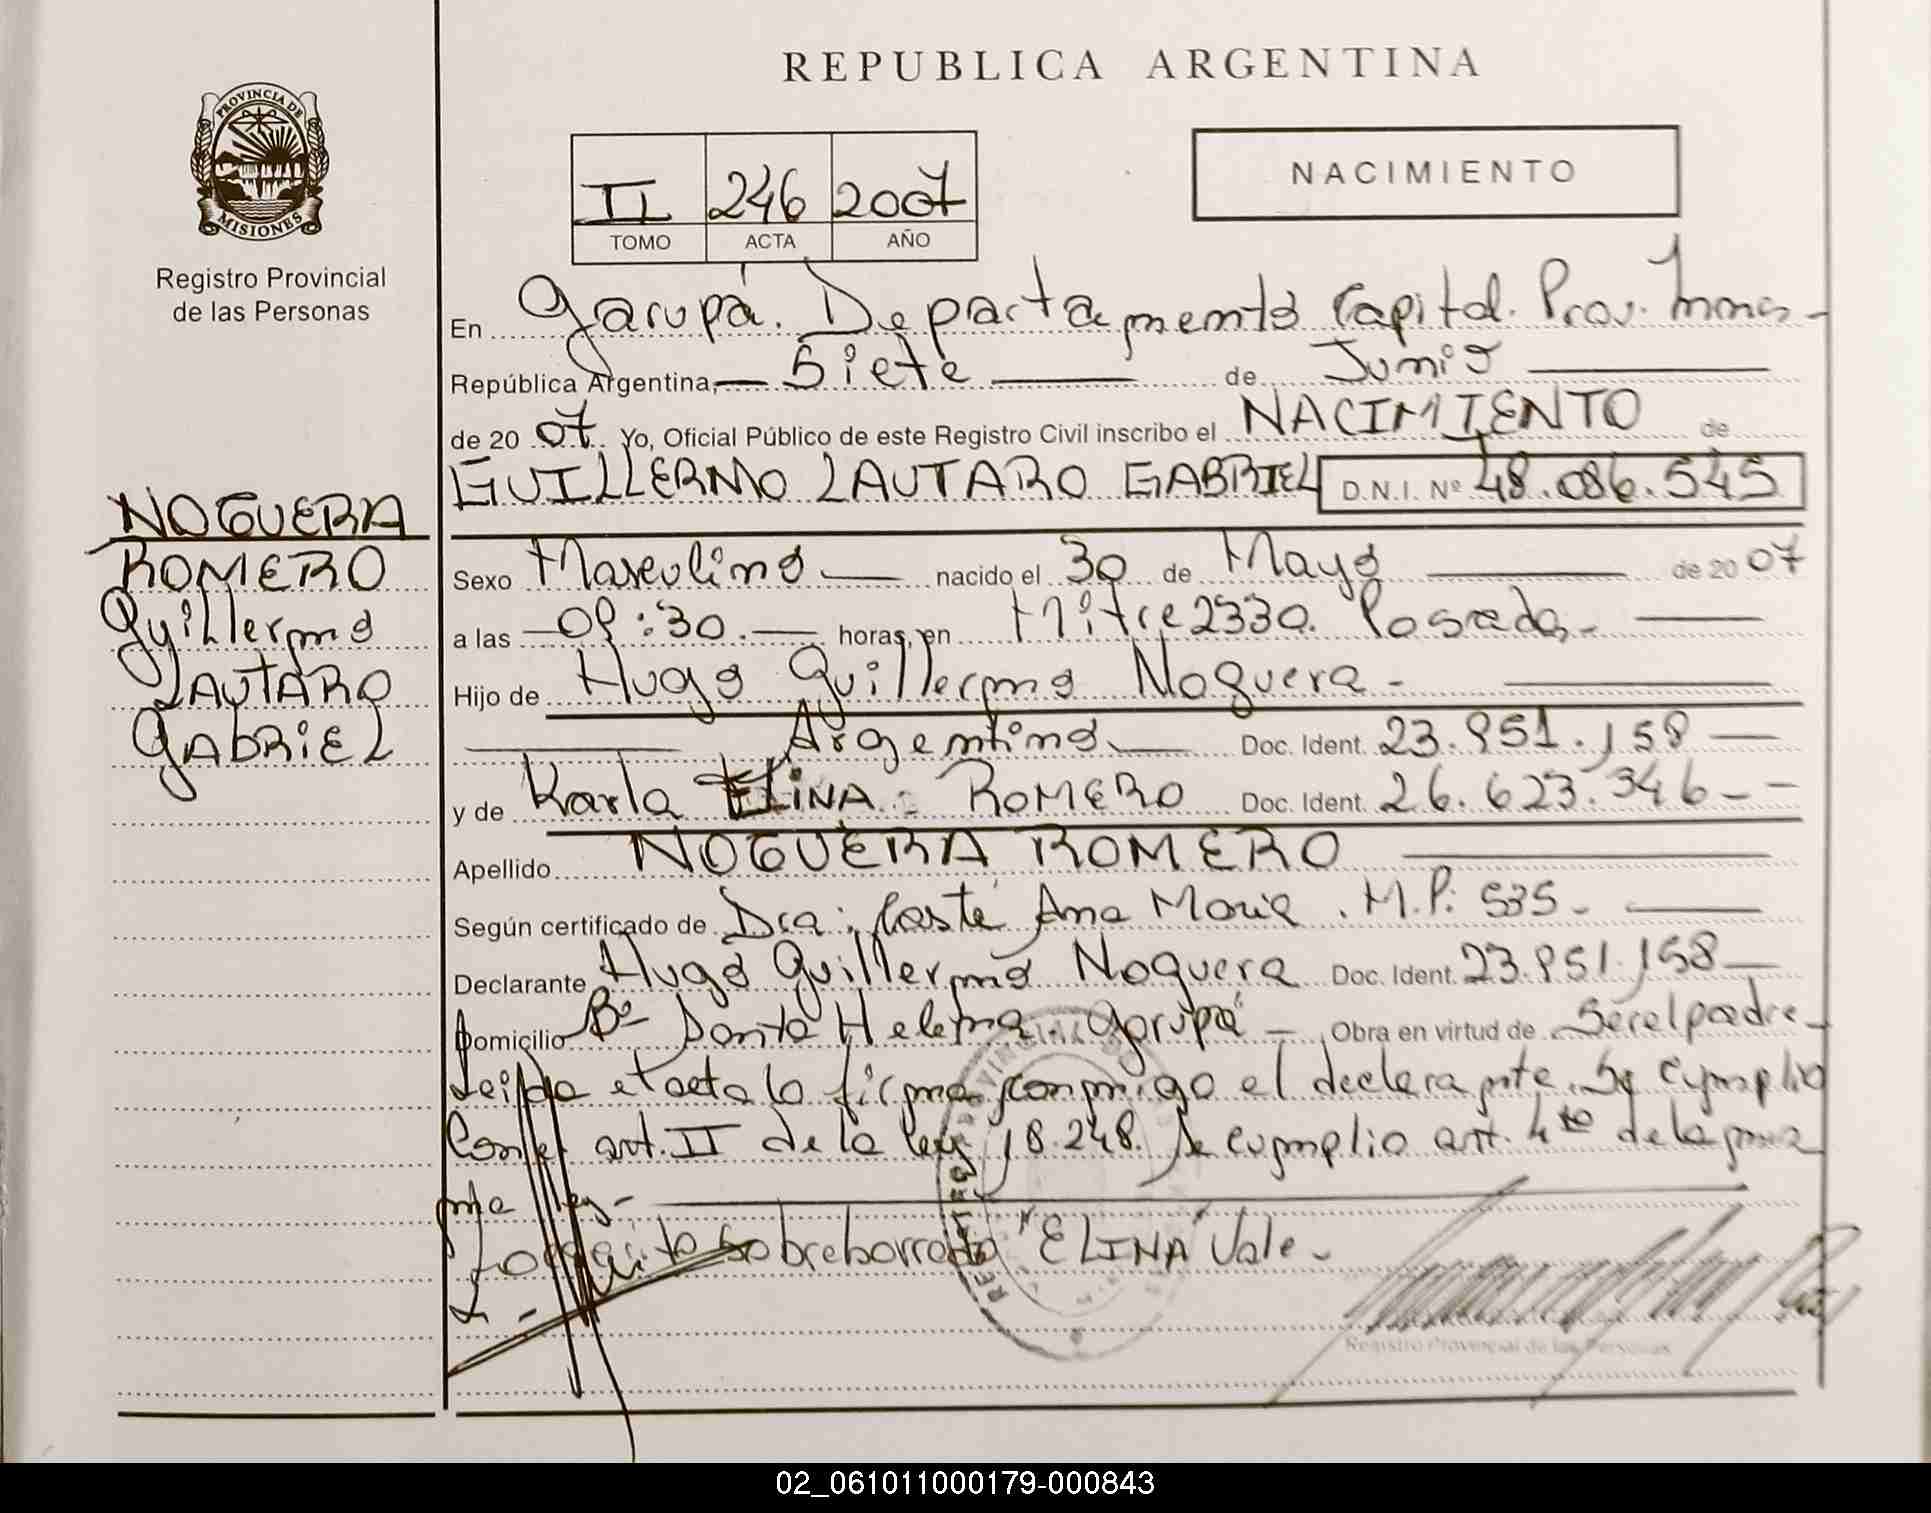 REPUBLICA ARGENTINA
PROVINCIA DE MISIONES
Registro Provincial
de las Personas
II 246 2007
TOMO ACTA AÑO
NACIMIENTO
NOGUERA
ROMERO
Guillermo
LAUTARO
GABRIEL
En Garupá. Departamento Capital. Prov. Mnes-
República Argentina, Siete de Junio
de 2007 Yo, Oficial Público de este Registro Civil inscribo el NACIMIENTO de
GUILLERMO LAUTARO GABRIEL D.N.I. Nº 48.086.545
Sexo Masculino nacido el 30 de Mayo de 2007
a las :30. horas, en Mitre 2330. Posadas-
Hijo de Hugo Guillermo Noguera-
Argentino Doc. Ident. 23.951.158
y de Karla ELINA- ROMERO Doc. Ident. 26.623.346--
Apellido NOGUERA ROMERO
Según certificado de Dra: Ana Maria. M.P: 535-
Declarante Hugo Guillermo Noguera Doc. Ident. 23.951.158
Domicilio Bº Santa Helena. Garupá- Obra en virtud de Ser el padre-
Leida el acta la firma conmigo el declarante. Se cumplio
Con el art. II de la ley 18.248. Se cumplio art. 4to de la mis
ma ley-
Lo escrito sobreborrado "ELINA" Vale-
Registro Provincial de las Personas
02_061011000179-000843